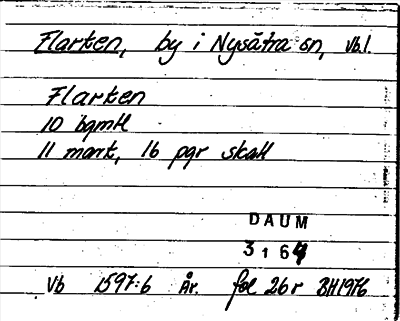 Flarken, by i Nysätra sn, Vb.l.
Flarken
10 bgmtl
11 mant, 16 pgr skatt
DAUM
3164
Vb 1597:6 År. fol 26r BH1976